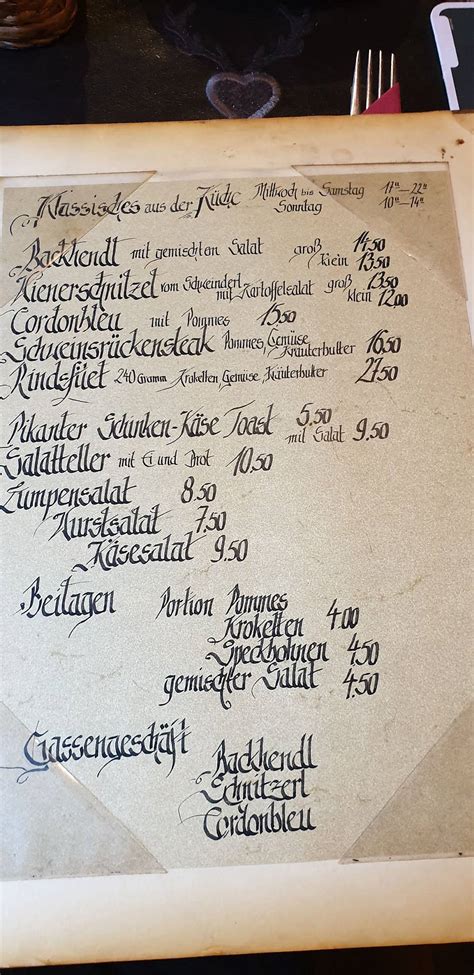 Klassisches aus der Küche Mittwoch bis Samstag 17⁰⁰—22⁰⁰
Sonntag 10⁰⁰—14⁰⁰
Backhendl mit gemischten Salat groß 14.50
klein 13.50
Wienerschnitzel vom Schweinderl mit Kartoffelsalat groß 13.50
klein 12.00
Cordonbleu mit Pommes 15.50
Schweinsrückensteak Pommes, Gemüse, Kräuterbutter 16.50
Rindsfilet 240 Gramm Kroketten, Gemüse, Kräuterbutter 27.50
Pikanter Schinken-Käse Toast 5.50
mit Salat 9.50
Salatteller mit Ei und Brot 10.50
Lumpensalat 8.50
Wurstsalat 7.50
Käsesalat 9.50
Beilagen Portion Pommes
Kroketten 4.00
Speckbohnen 4.50
gemischter Salat 4.50
Gassengeschäft
Backhendl
Schnitzerl
Cordonbleu